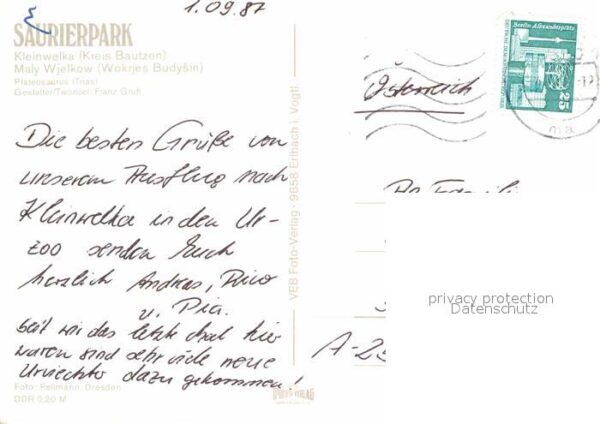 1.09.87
SAURIERPARK
Kleinwelka (Kreis Bautzen)
Mały Wjelkow (Wokrjes Budyšin)
Plateosaurus (Trias)
Gestalter/Tworićel: Franz Gruß
Die besten Grüße von
unserem Ausflug nach
Kleinwelka in den Ur-
zoo senden Euch
herzlich Andreas, Pico
u. Pia.
Seit wir das letzte Mal hier
waren sind sehr viele neue
Urviechter dazu gekommen!
Foto: Pellmann, Dresden
DDR 0,20 M
VEB Foto-Verlag · 9658 Erlbach i. Vogtl.
Berlin, Alexanderplatz
25
Österreich
privacy protection
Datenschutz
A-25